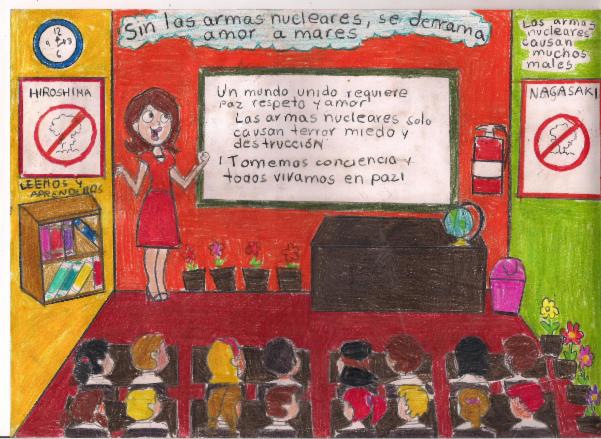 Sin las armas nucleares, se derrama
amor a mares
Las armas
nucleares
causan
muchos
males
12
9 3
6
HIROSHIMA
NAGASAKI
Un mundo unido requiere
paz respeto y amor
Las armas nucleares solo
causan terror miedo y
destrucción
¡Tomemos conciencia y
todos vivamos en paz!
LEEMOS Y
APRENDEMOS